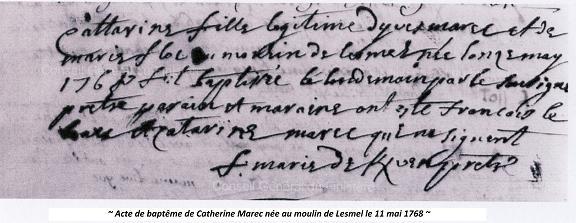 Catarine fille legitime dyves marec et de
marie floc au moulin de lesmel née lonze may
1768 fut baptisée le lendemain par le soussigné
pretre parain et maraine ont este francois le
et Catarine marec qui ne signent
f. marie de pretre
Conseil Général du Finistère
~ Acte de baptême de Catherine Marec née au moulin de Lesmel le 11 mai 1768 ~